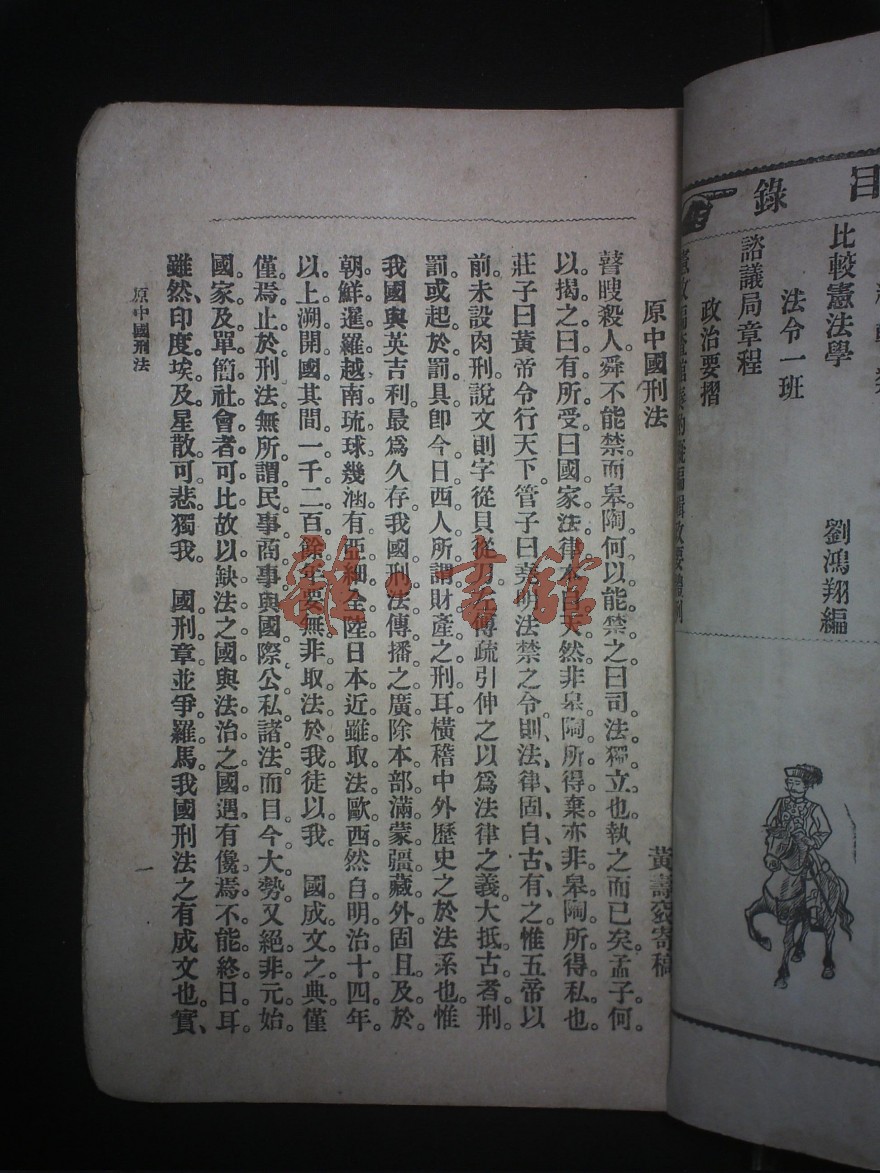 目錄
比較憲法學 劉鴻翔編
法令一班
諮議局章程
政治要摺
原中國刑法 黃壽 寄稿
瞽瞍殺人舜不能禁而皋陶何以能禁之曰司法獨立也執之而已矣孟子何
以揭之曰有所受曰國家法律本自天然非皋陶所得棄亦非皋陶所得私也
莊子曰黃帝令行天下管子曰堯明法禁之令則法律固自古有之惟五帝以
前未設肉刑說文則字從貝從刀左傳疏引伸之以爲法律之義大抵古者刑
罰或起於罰具卽今日西人所謂財產之刑耳橫稽中外歷史之於法系也惟
我國與英吉利最爲久存我國刑法傳播之廣除本部滿蒙疆藏外固且及於
朝鮮暹羅越南琉球幾涵有亞細全陸日本近雖取法歐西然自明治十四年
以上溯開國其間一千二百餘年要無非取法於我徒以我 國成文之典僅
僅焉止於刑法無所謂民事商事與國際公私諸法而目今大勢又絕非元始
國家及單簡社會者可比故以缺法之國與法治之國遇有儳焉不能終日耳
雖然印度埃及星散可悲獨我 國刑章並爭羅馬我國刑法之有成文也實
原中國刑法 一
雜·書館